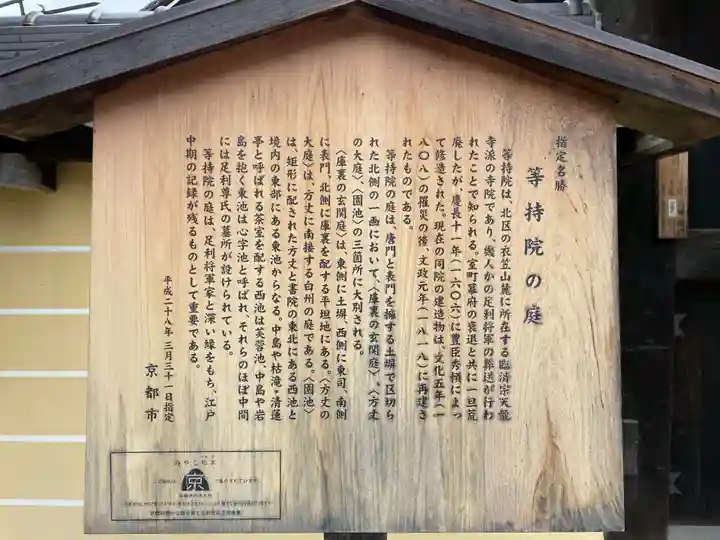 指定名勝
等持院の庭
等持院は、北区の衣笠山麓に所在する臨済宗天龍
寺派の寺院であり、幾人かの足利将軍の葬送が行わ
れたことで知られる。室町幕府の衰退と共に一旦荒
廃したが、慶長十一年(一六〇六)に豊臣秀頼によっ
て修造された。現在の同院の建造物は、文化五年(一
八〇八)の罹災の後、文政元年(一八一八)に再建さ
れたものである。
等持院の庭は、唐門と表門を擁する土塀で区切ら
れた北側の一画において、〈庫裏の玄関庭〉、〈方丈
の大庭〉、〈園池〉の三箇所に大別される。
〈庫裏の玄関庭〉は、東側に土塀、西側に東司、南側
に表門、北側に庫裏を配する平坦地にある。〈方丈の
大庭〉は、方丈に南接する白州の庭である。〈園池〉
は、矩形に配された方丈と書院の東北にある西池と
境内の東部にある東池からなる。中島や枯滝・清蓮
亭と呼ばれる茶室を配する西池は芙蓉池、中島や岩
島を抱く東池は心字池と呼ばれ、それらのほぼ中間
には足利尊氏の墓所が設けられている。
等持院の庭は、足利将軍家と深い縁をもち、江戸
中期の記録が残るものとして重要である。
平成二十八年三月三十一日指定
京都市
みやこ杣木
京